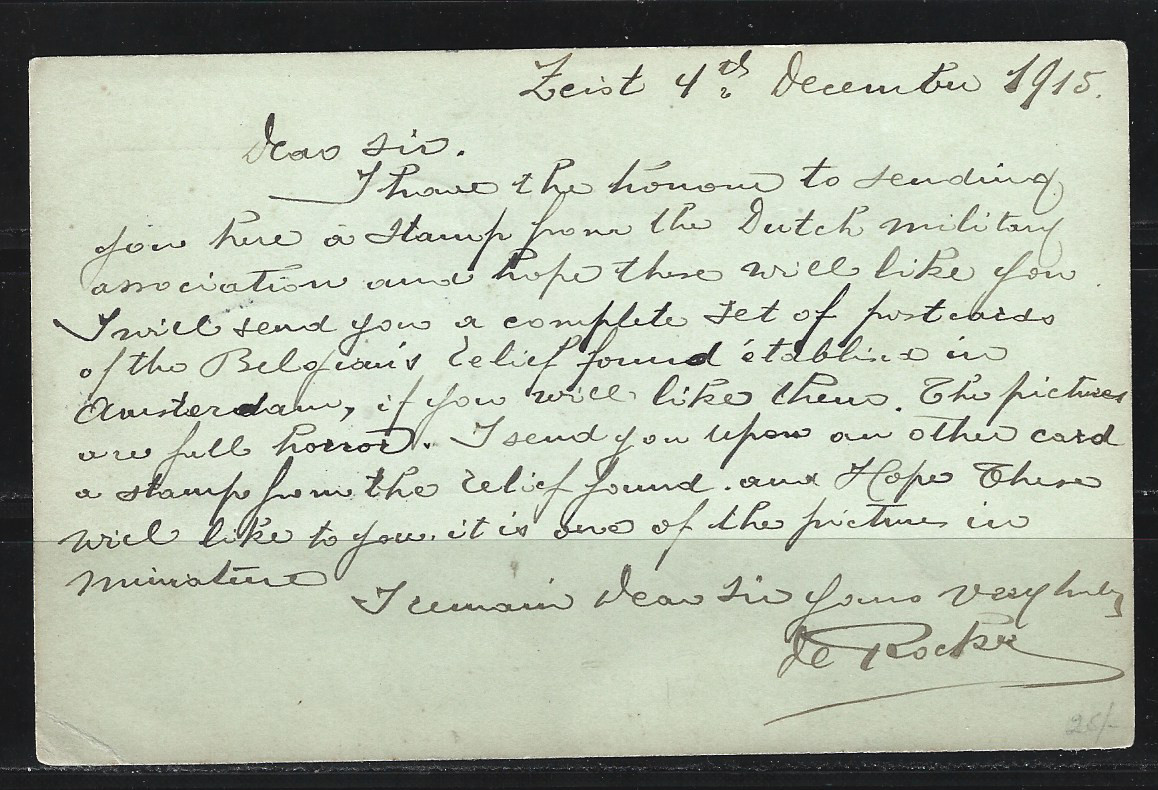 Zeist 4th December 1915.
Dear Sir.
I have the honour to sending
you here a stamp from the Dutch military
association and hope these will like you
I will send you a complete set of postcards
of the Belgian's relief found etablised in
Amsterdam, if you will like them. The pictures
are full horror. I send you upon an other card
a stamp from the relief found. and Hope These
will like to you. it is one of the pictures in
minature
I remain Dear Sir yours very truly
de Rocker
25/-